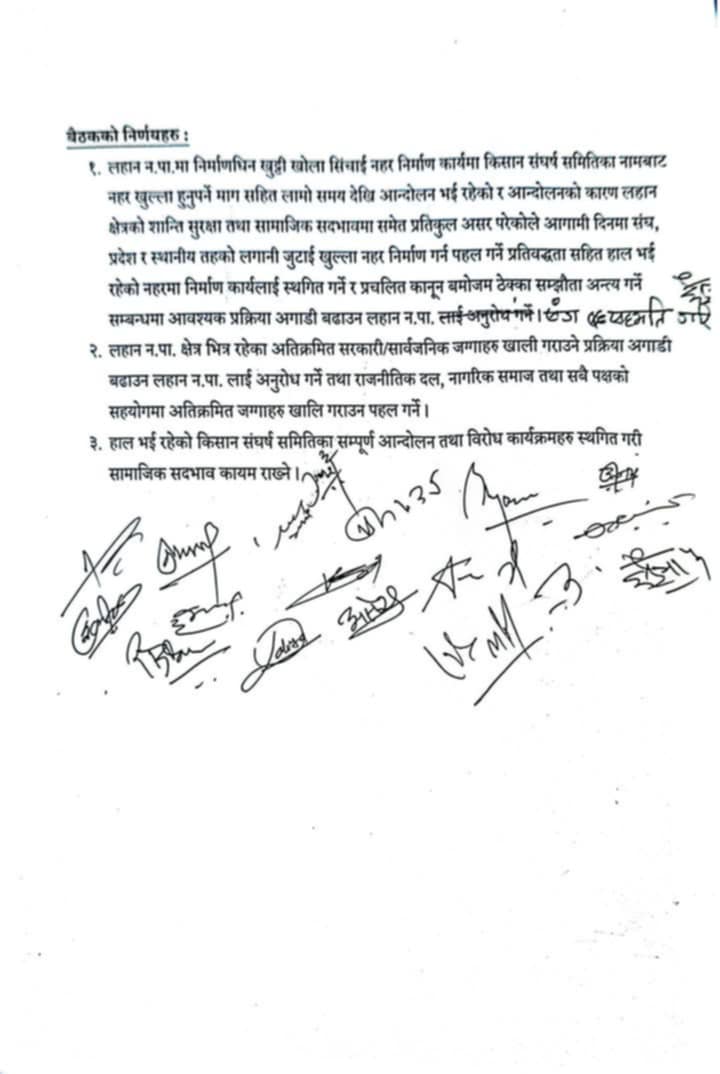 बैठकको निर्णयहरु :
१. लहान न.पा.मा निर्माणधिन खुट्टी खोला सिंचाई नहर निर्माण कार्यमा किसान संघर्ष समितिका नामबाट
नहर खुल्ला हुनुपर्ने माग सहित लामो समय देखि आन्दोलन भई रहेको र आन्दोलनको कारण लहान
क्षेत्रको शान्ति सुरक्षा तथा सामाजिक सदभावमा समेत प्रतिकुल असर परेकोले आगामी दिनमा संघ,
प्रदेश र स्थानीय तहको लगानी जुटाई खुल्ला नहर निर्माण गर्न पहल गर्ने प्रतिवद्धता सहित हाल भई
रहेको नहरमा निर्माण कार्यलाई स्थगित गर्ने र प्रचलित कानून बमोजम ठेक्का सम्झौता अन्त्य गर्ने
सम्बन्धमा आवश्यक प्रक्रिया अगाडी बढाउन लहान न.पा. लाई अनुरोध गर्ने।
२. लहान न.पा. क्षेत्र भित्र रहेका अतिक्रमित सरकारी/सार्वजनिक जग्गाहरु खाली गराउने प्रक्रिया अगाडी
बढाउन लहान न.पा. लाई अनुरोध गर्ने तथा राजनीतिक दल, नागरिक समाज तथा सबै पक्षको
सहयोगमा अतिक्रमित जग्गाहरु खालि गराउन पहल गर्ने।
३. हाल भई रहेको किसान संघर्ष समितिका सम्पूर्ण आन्दोलन तथा विरोध कार्यक्रमहरु स्थगित गरी
सामाजिक सदभाव कायम राख्ने।